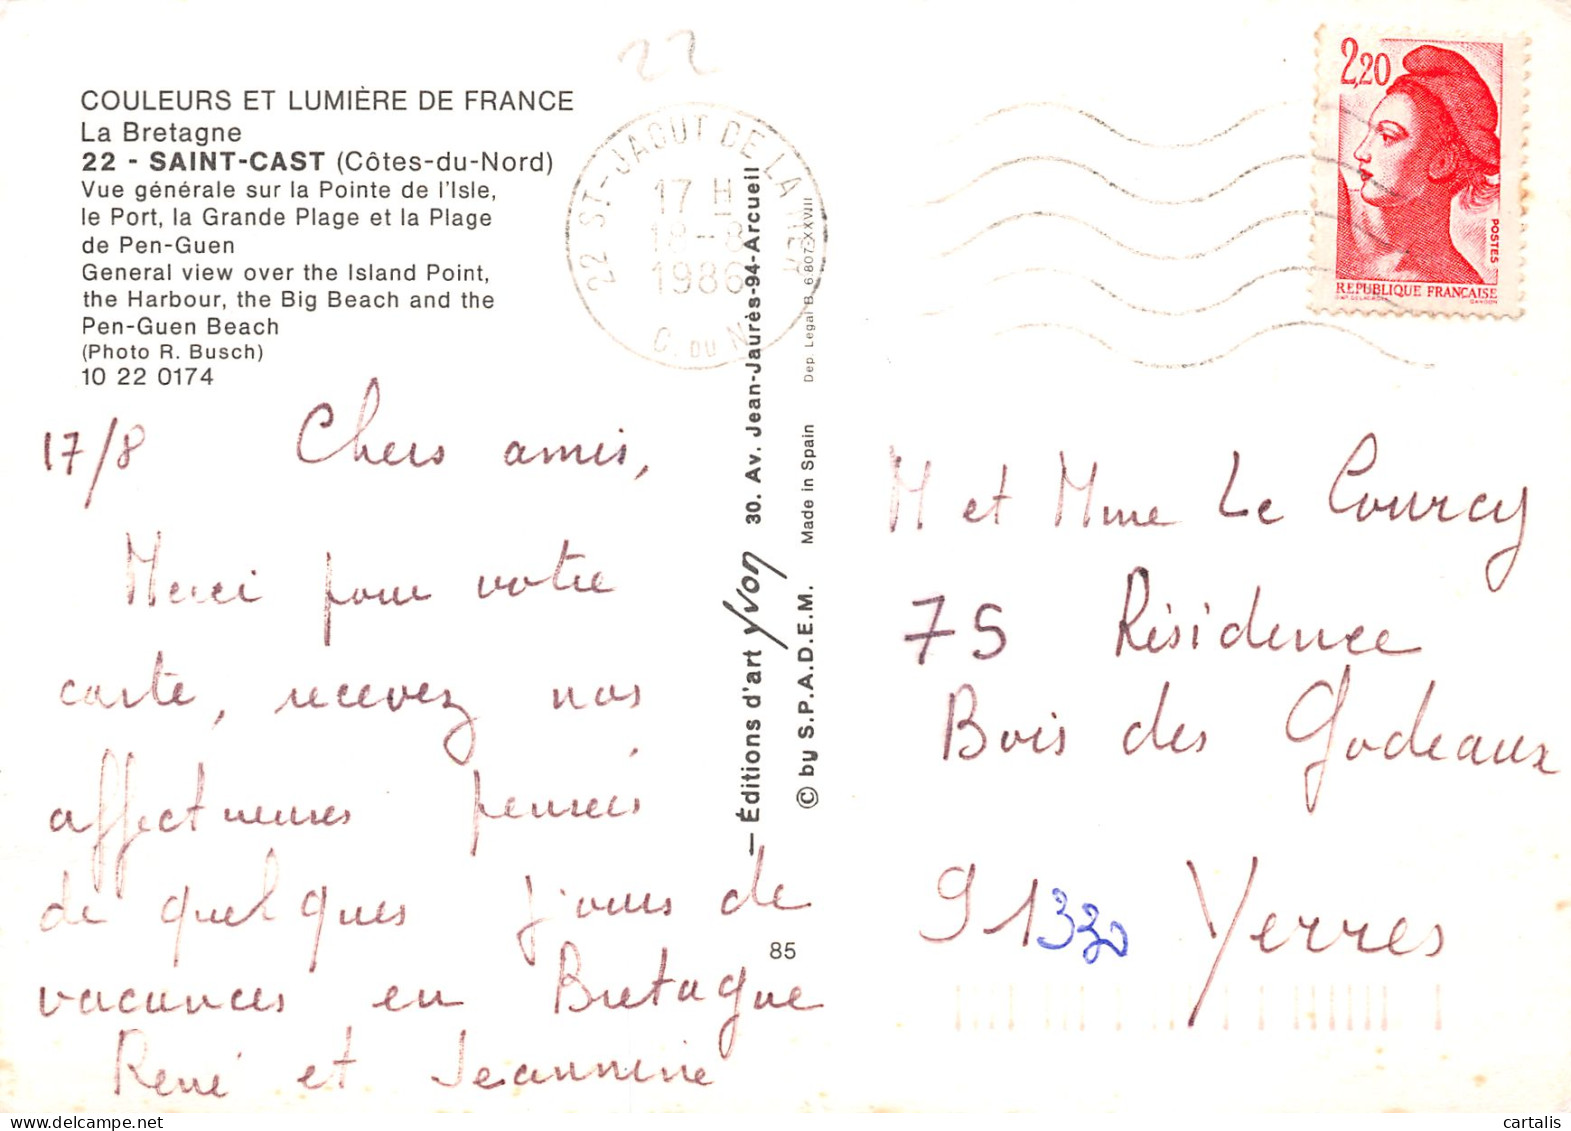 22
COULEURS ET LUMIÈRE DE FRANCE
La Bretagne
22 - SAINT-CAST (Côtes-du-Nord)
Vue générale sur la Pointe de l'Isle,
le Port, la Grande Plage et la Plage
de Pen-Guen
General view over the Island Point,
the Harbour, the Big Beach and the
Pen-Guen Beach
(Photo R. Busch)
10 22 0174
22 ST-JACUT DE LA MER
17 H
18-8
1986
C. DU N.
17/8 Chers amis,
Merci pour votre
carte, recevez nos
affectueuses pensées
de quelques jours de
vacances en Bretagne
René et Jeannine
— Éditions d'art Yvon 30. Av. Jean-Jaurès-94-Arcueil
© by S.P.A.D.E.M. Made in Spain Dep. Legal B. 6.807-XXVIII
85
2,20
POSTES
REPUBLIQUE FRANÇAISE
M et Mme Le Courcy
75 Résidence
Bois des Godeaux
91330 Yerres
cartalis